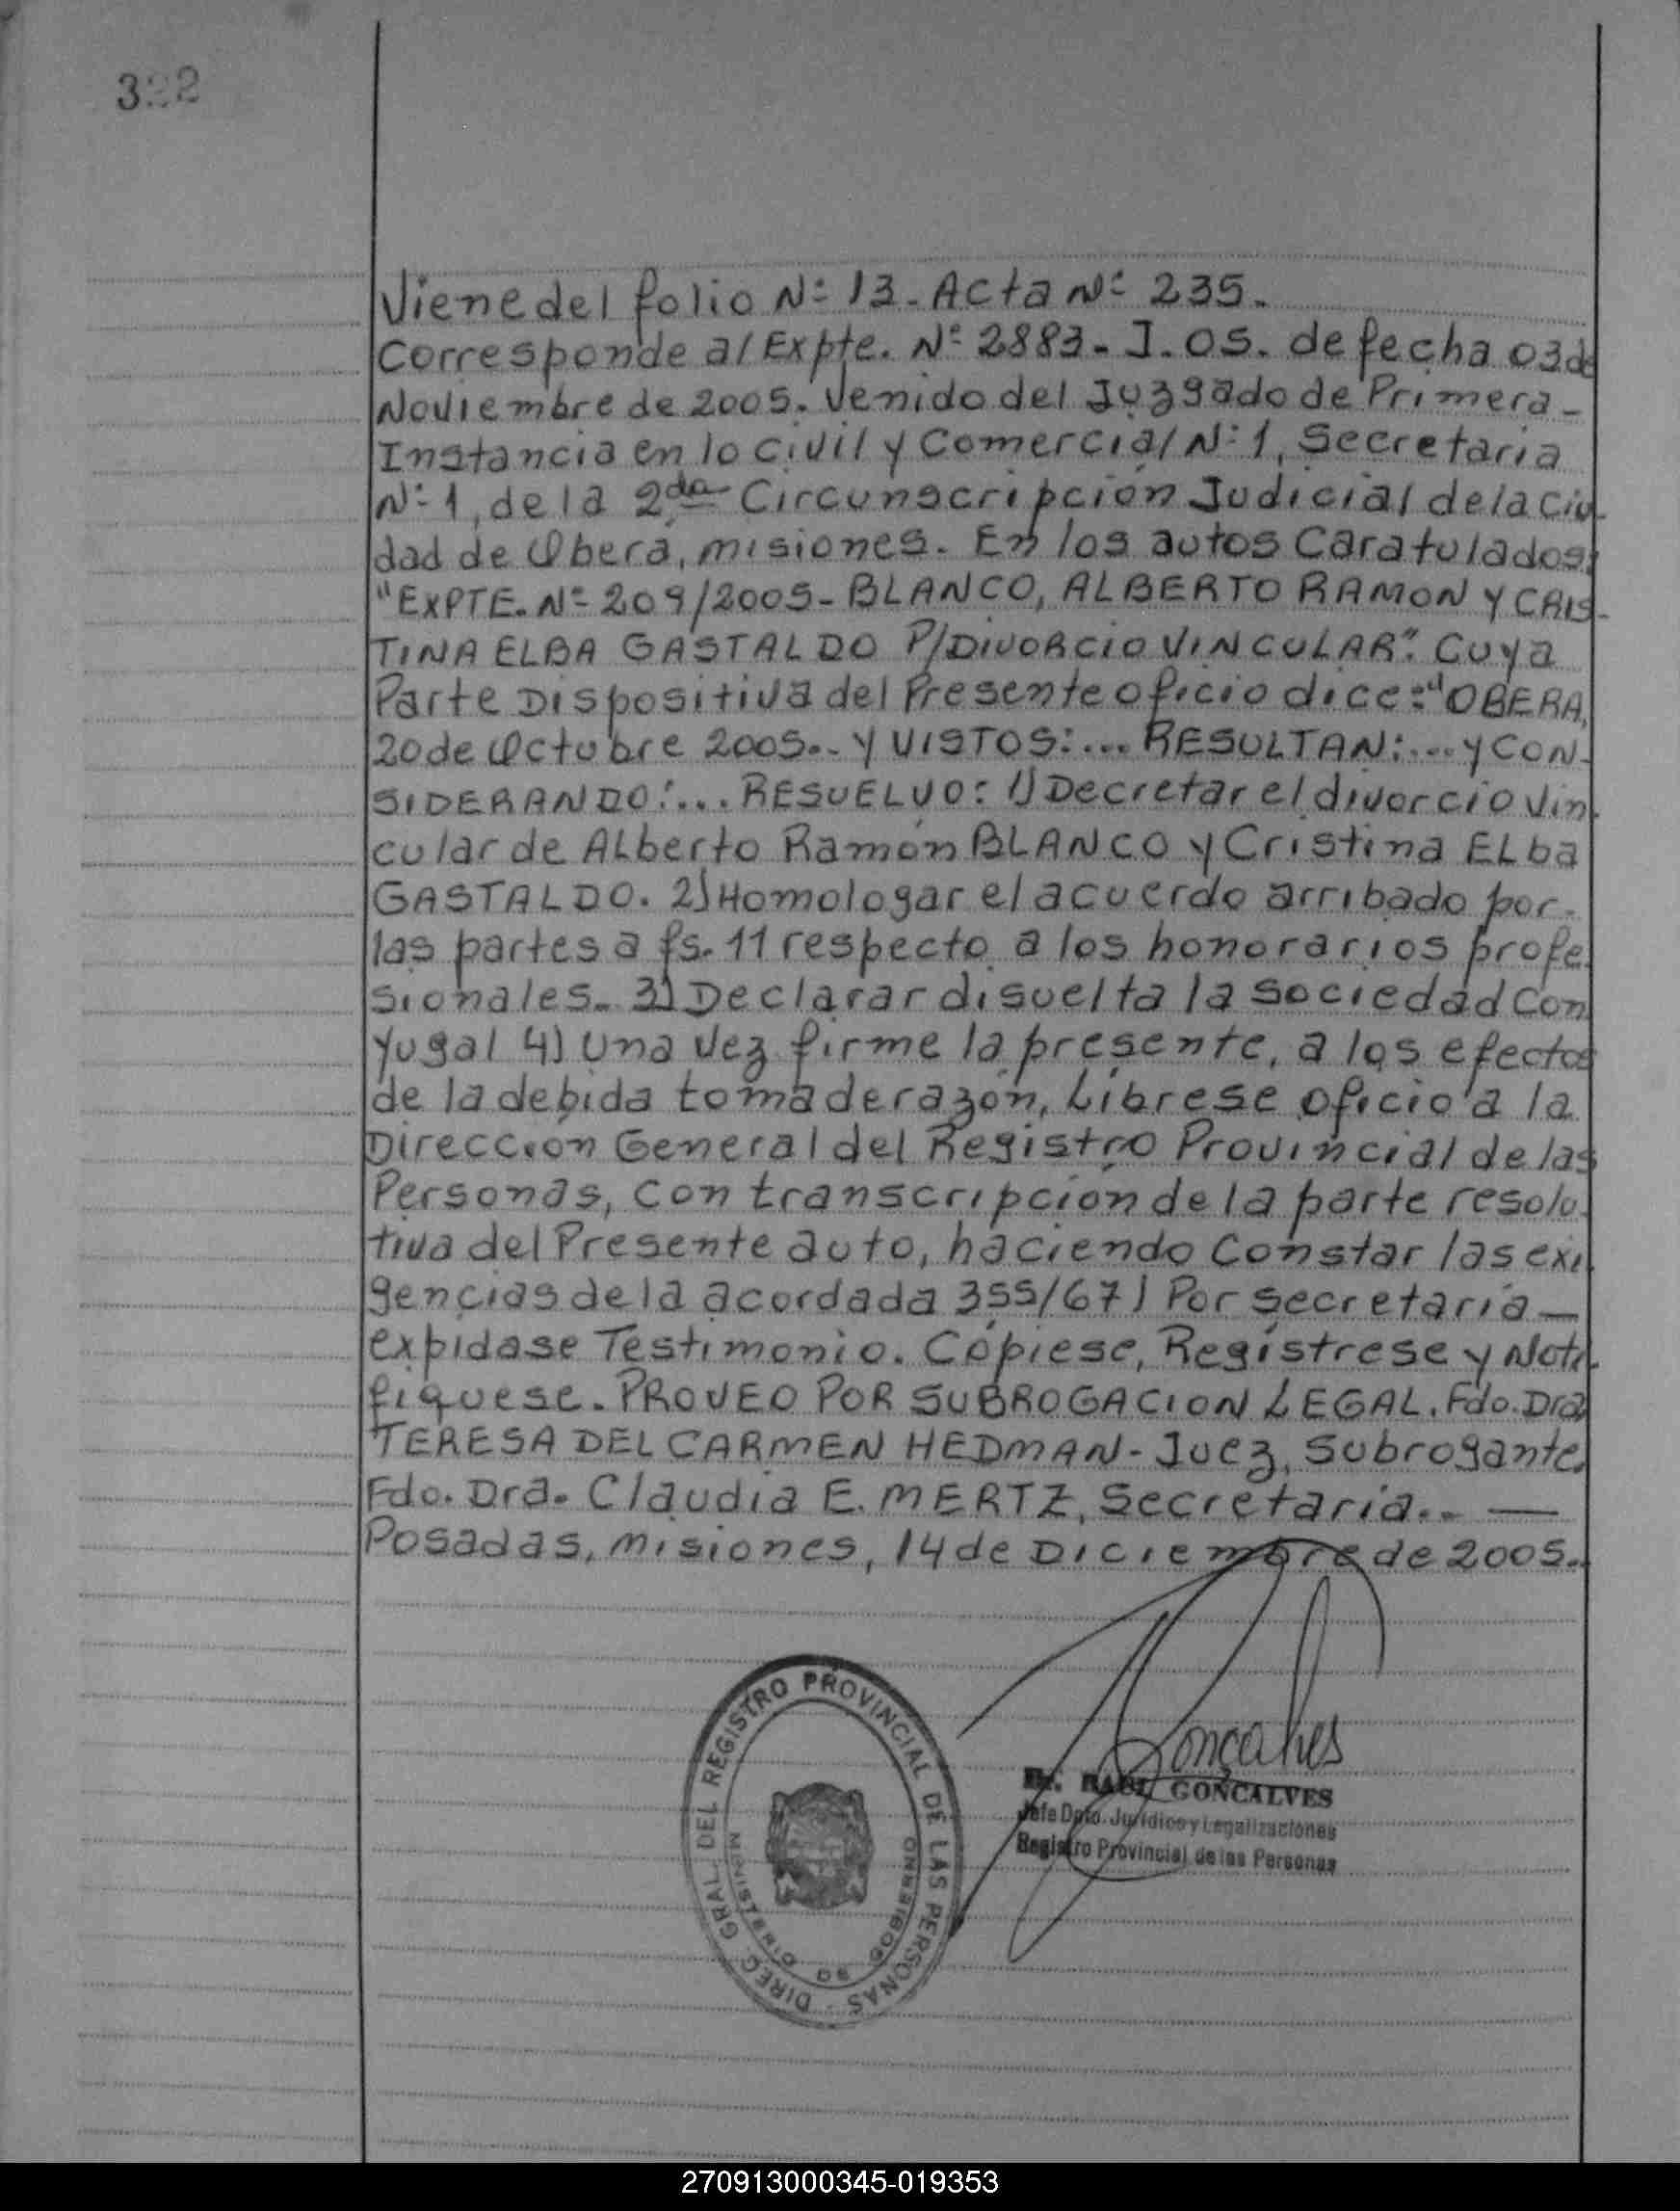 322
Viene del folio Nº 13 - Acta Nº 235.
Corresponde al Expte. Nº 2883 - J. 05. de fecha 03 de
Noviembre de 2005. Venido del Juzgado de Primera -
Instancia en lo Civil y Comercial Nº 1, Secretaria
Nº 1, de la 2da Circunscripción Judicial de la Ciu-
dad de Obera, Misiones. En los autos Caratulados:
"EXPTE. Nº 209/2005 - BLANCO, ALBERTO RAMON Y CRIS-
TINA ELBA GASTALDO P/DIVORCIO VINCULAR". Cuya
Parte Dispositiva del Presente oficio dice: "OBERA,
20 de Octubre 2005.- Y VISTOS:... RESULTAN:... Y CON-
SIDERANDO:... RESUELVO: 1) Decretar el divorcio Vin-
cular de Alberto Ramón BLANCO y Cristina Elba
GASTALDO. 2) Homologar el acuerdo arribado por-
las partes a fs. 11 respecto a los honorarios profe-
sionales. 3) Declarar disuelta la Sociedad Con
yugal 4) Una vez firme la presente, a los efectos
de la debida toma de razón, Líbrese oficio a la
Dirección General del Registro Provincial de las
Personas, con transcripción de la parte resolu-
tiva del Presente auto, haciendo Constar las exi-
gencias de la acordada 355/67) Por secretaría —
expidase Testimonio. Cópiese, Regístrese y Noti-
fiquese. PROVEO POR SUBROGACION LEGAL. Fdo. Dra
TERESA DEL CARMEN HEDMAN - Juez, Subrogante.
Fdo. Dra. Claudia E. MERTZ, Secretaria.. —
Posadas, Misiones, 14 de Diciembre de 2005.
DIREC. GRAL. DEL REGISTRO PROVINCIAL DE LAS PERSONAS
MISIONES
Gonçalves
Dr. RAUL GONCALVES
Jefe Dpto. Jurídico y Legalizaciones
Registro Provincial de las Personas
270913000345-019353